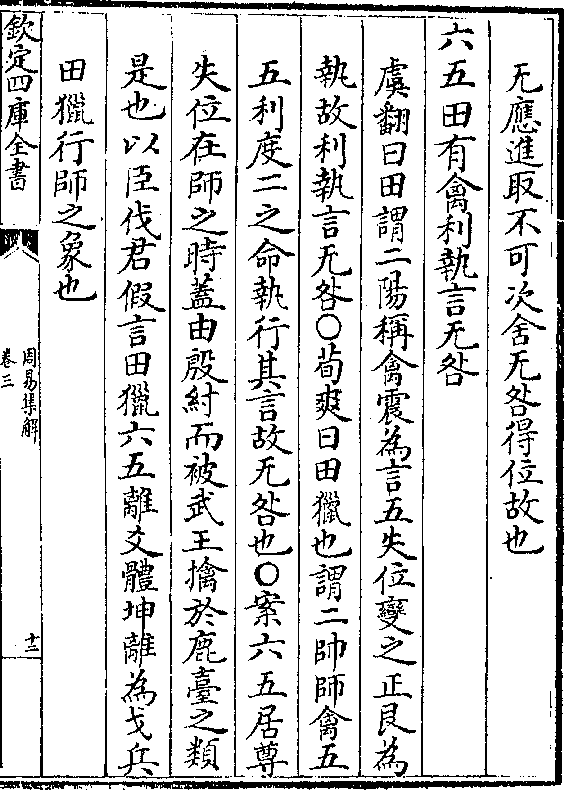 无應進取不可次舍无咎得位故也
六五田有禽利執言无咎
虞翻曰田謂二陽稱禽震為言五失位變之正艮為
執故利執言无咎○荀爽曰田獵也謂二帥師禽五
五利度二之命執行其言故无咎也○案六五居尊
失位在師之時蓋由殷紂而被武王擒於鹿臺之類
是也以臣伐君假言田獵六五離爻體坤離為戈兵
田獵行師之象也
欽定四庫全書
周易集解
卷三
十三